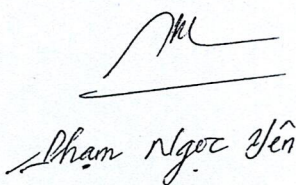 Phạm Ngọc Yên